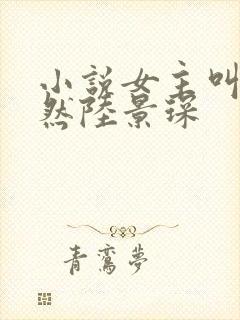 小説女主叫
然陸景琛
青鸞夢